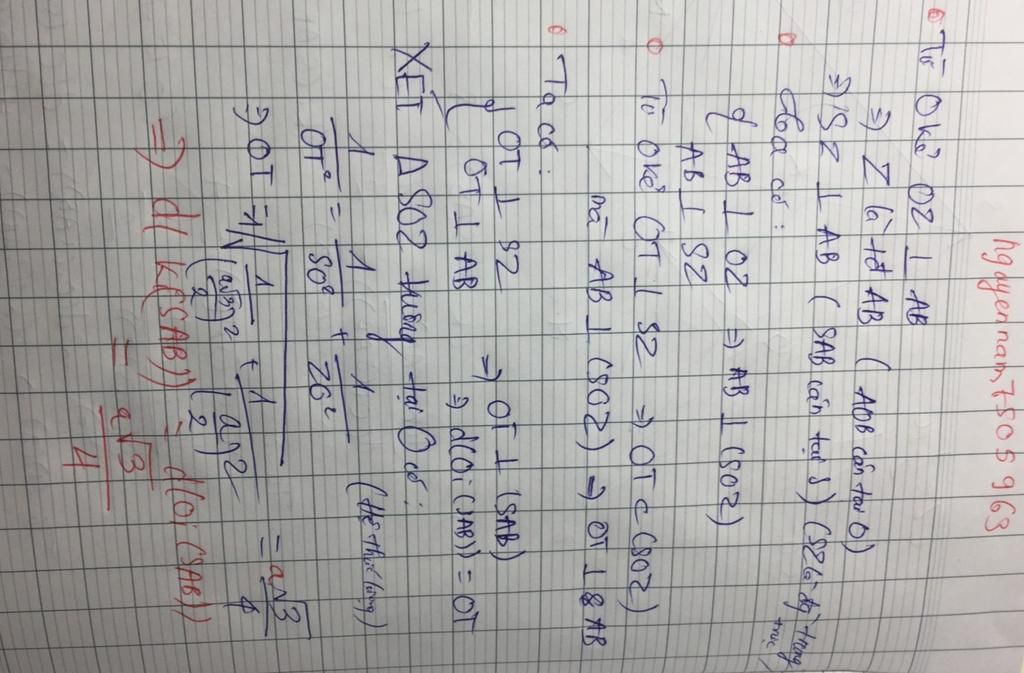 nguyennam7505963
Từ O kẻ OZ ⊥ AB
=) Z là tđ AB (AOB cân tại O)
=) SZ ⊥ AB (SAB cân tại S) (SZ là đg trung trực)
Ta có:
{ AB ⊥ OZ => AB ⊥ (SOZ)
AB ⊥ SZ
Từ O kẻ OT ⊥ SZ => OT ⊂ (SOZ)
mà AB ⊥ (SOZ) => OT ⊥ AB
Ta có:
{ OT ⊥ SZ => OT ⊥ (SAB)
OT ⊥ AB => d(O; (SAB)) = OT
XÉT Δ SOZ vuông tại O có:
1/OT² = 1/SO² + 1/ZO² (Hệ thức lượng)
=) OT = 1/√(1/(a√3/2)² + 1/(a/2)²) = a√3/4
=) d( K(SAB)) = d(O; (SAB))
= a√3/4